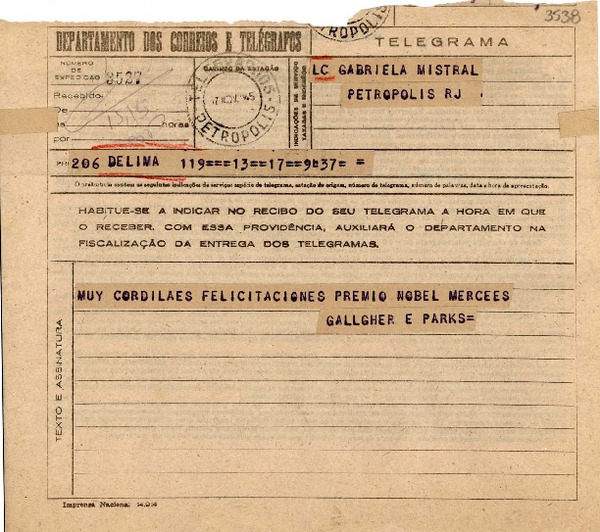 3538
DEPARTAMENTO DOS CORREIOS E TELÉGRAFOS
TELEGRAMA
PETROPOLIS
NÚMERO DE EXPEDIÇÃO 3527
CARIMBO DA ESTAÇÃO
INDICAÇÕES DE SERVIÇO TAXADAS E ENDEREÇO
LC GABRIELA MISTRAL
PETROPOLIS RJ .
Recebido
De
horas
por
PETROPOLIS
206 DELIMA 119===13=17=9.37= =
O preâmbulo contém as seguintes indicações de serviço: espécie do telegrama, estação de origem, número do telegrama, número de palavras, data e hora da apresentação.
HABITUE-SE A INDICAR NO RECIBO DO SEU TELEGRAMA A HORA EM QUE
O RECEBER. COM ESSA PROVIDÊNCIA, AUXILIARÁ O DEPARTAMENTO NA
FISCALIZAÇÃO DA ENTREGA DOS TELEGRAMAS.
TEXTO E ASSINATURA
MUY CORDILAES FELICITACIONES PREMIO NOBEL MERCEES
GALLGHER E PARKS=
Imprensa Nacional